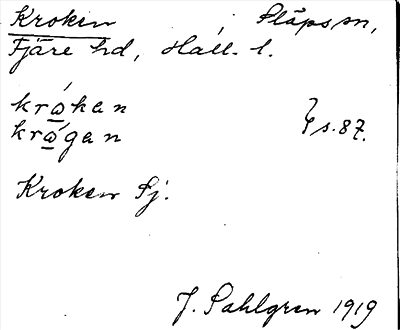 Kroken Släps sn,
Fjäre hd, Hall. l.
krókan
krógan } s. 87.
Kroken Sj.
J. Sahlgren 1919